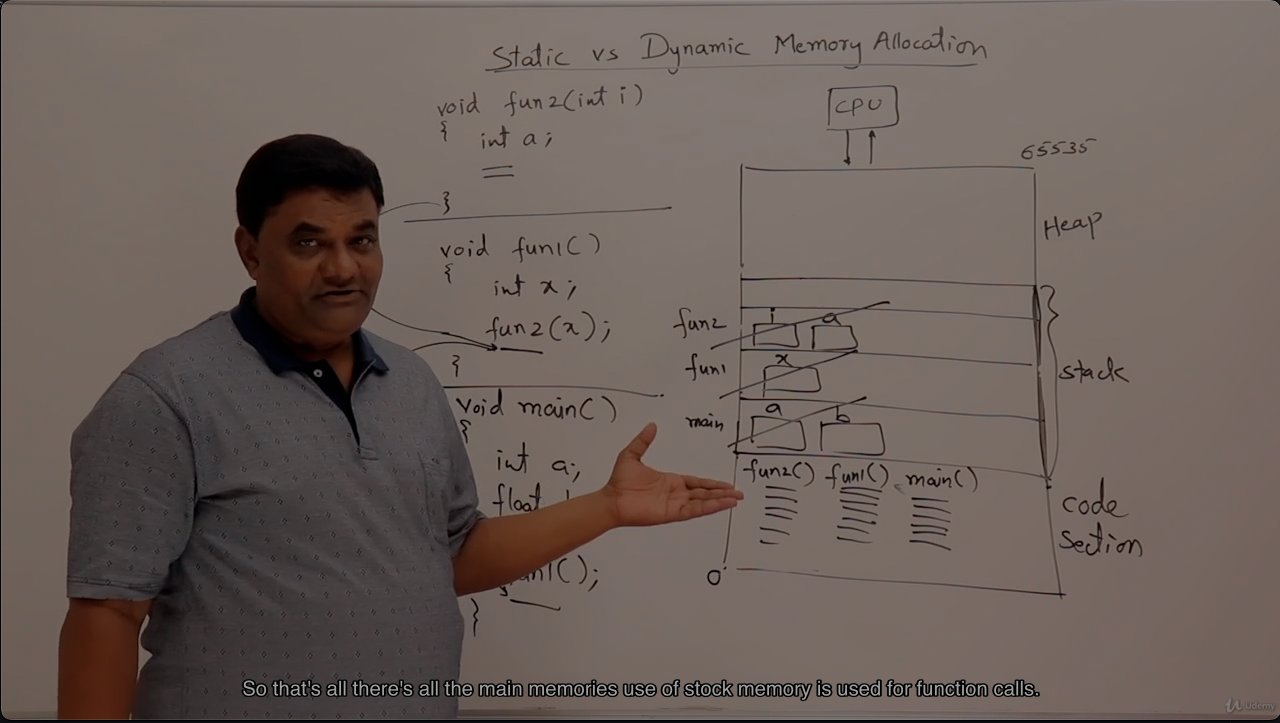 Static vs Dynamic Memory Allocation
void fun2(int i)
{
int a;
}
void fun1()
{
int x;
fun2(x);
}
void main()
{
int a;
float
fun1();
}
CPU
65535
Heap
fun2
i a
fun1
x
stack
main
a b
fun2() fun1() main()
code
section
0
So that's all there's all the main memories use of stock memory is used for function calls.
Udemy